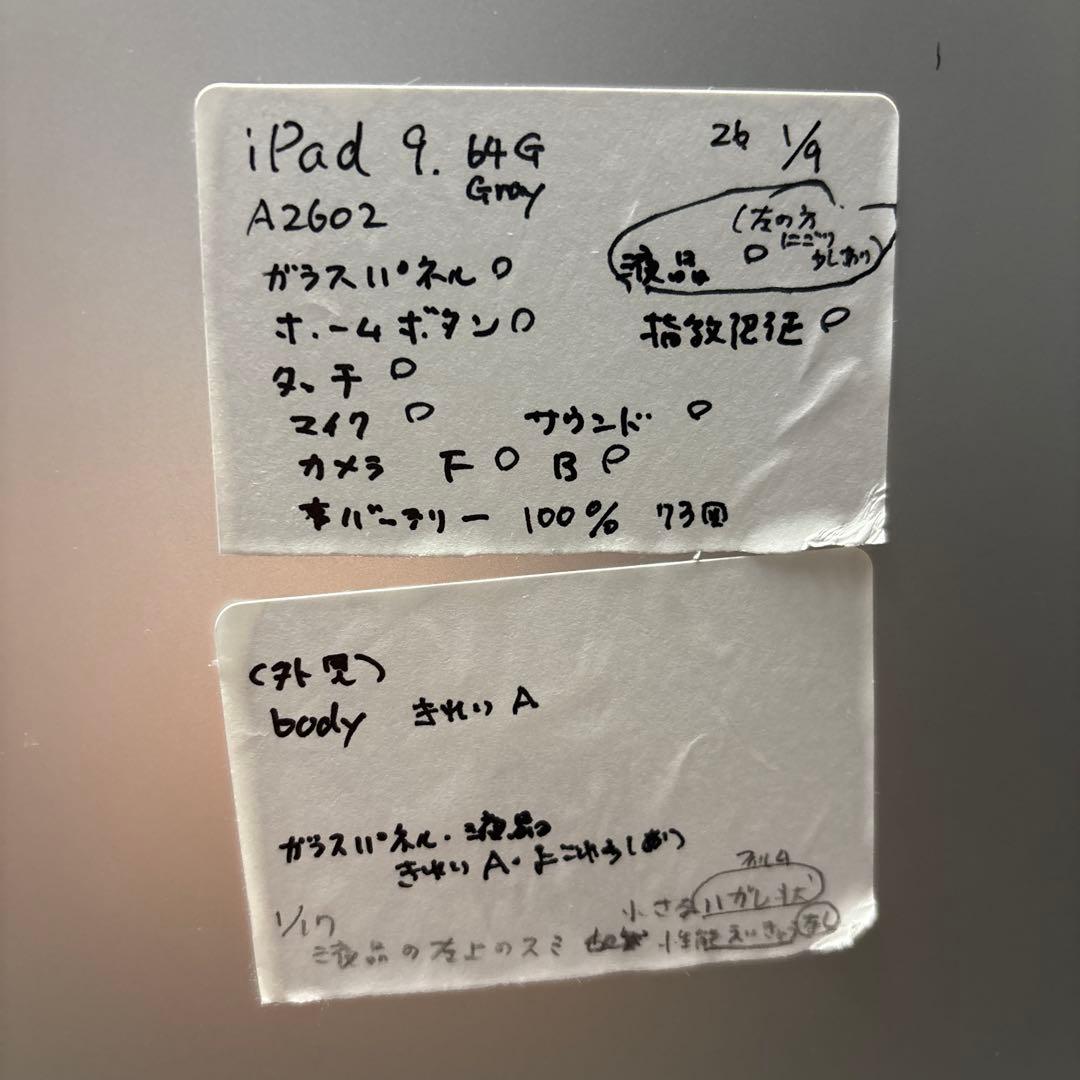 iPad 9. 64G
Gray
26 1/9
A2602
(左の方
にごり
少しあり)
液晶 ○
ガラスパネル ○
ホームボタン ○
指紋認証 ○
タッチ ○
マイク ○ サウンド ○
カメラ F ○ B ○
バッテリー 100% 73回
(外見)
body きれい A
ガラスパネル・液晶
きれい A・よごれ少しあり
フィルム
小さな ハガレ状
1/17
液晶の左上のスミ 性能えいきょう なし